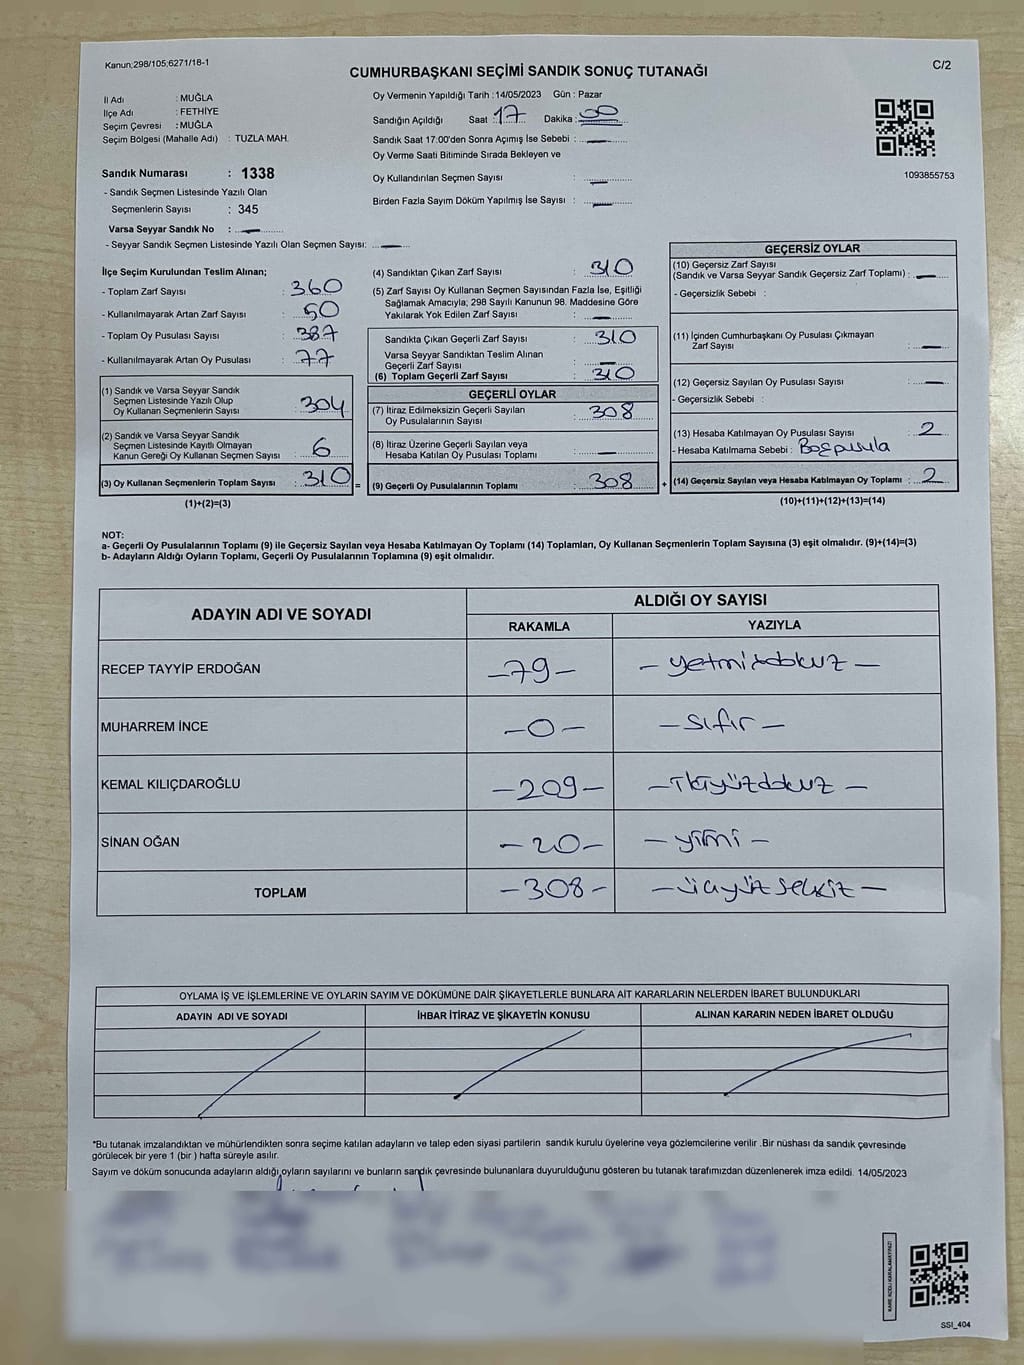 Kanun;298/105;6271/18-1
CUMHURBAŞKANI SEÇİMİ SANDIK SONUÇ TUTANAĞI
C/2
İl Adı : MUĞLA
İlçe Adı : FETHİYE
Seçim Çevresi : MUĞLA
Seçim Bölgesi (Mahalle Adı) : TUZLA MAH.
Sandık Numarası : 1338
- Sandık Seçmen Listesinde Yazılı Olan
Seçmenlerin Sayısı : 345
Varsa Seyyar Sandık No : —
- Seyyar Sandık Seçmen Listesinde Yazılı Olan Seçmen Sayısı: —
Oy Vermenin Yapıldığı Tarih :14/05/2023 Gün : Pazar
Sandığın Açıldığı Saat : 17 Dakika : 00
Sandık Saat 17:00'den Sonra Açımış İse Sebebi : —
Oy Verme Saati Bitiminde Sırada Bekleyen ve
Oy Kullandırılan Seçmen Sayısı : —
Birden Fazla Sayım Döküm Yapılmış İse Sayısı : —
1093855753
İlçe Seçim Kurulundan Teslim Alınan;
- Toplam Zarf Sayısı : 360
- Kullanılmayarak Artan Zarf Sayısı : 50
- Toplam Oy Pusulası Sayısı : 387
- Kullanılmayarak Artan Oy Pusulası : 77
(1) Sandık ve Varsa Seyyar Sandık
Seçmen Listesinde Yazılı Olup
Oy Kullanan Seçmenlerin Sayısı : 304
(2) Sandık ve Varsa Seyyar Sandık
Seçmen Listesinde Kayıtlı Olmayan
Kanun Gereği Oy Kullanan Seçmen Sayısı : 6
(3) Oy Kullanan Seçmenlerin Toplam Sayısı : 310 =
(1)+(2)=(3)
(4) Sandıktan Çıkan Zarf Sayısı : 310
(5) Zarf Sayısı Oy Kullanan Seçmen Sayısından Fazla İse, Eşitliği
Sağlamak Amacıyla; 298 Sayılı Kanunun 98. Maddesine Göre
Yakılarak Yok Edilen Zarf Sayısı : —
Sandıkta Çıkan Geçerli Zarf Sayısı : 310
Varsa Seyyar Sandıktan Teslim Alınan
Geçerli Zarf Sayısı : —
(6) Toplam Geçerli Zarf Sayısı : 310
GEÇERLİ OYLAR
(7) İtiraz Edilmeksizin Geçerli Sayılan
Oy Pusulalarının Sayısı : 308
(8) İtiraz Üzerine Geçerli Sayılan veya
Hesaba Katılan Oy Pusulası Toplamı : —
(9) Geçerli Oy Pusulalarının Toplamı : 308 +
GEÇERSİZ OYLAR
(10) Geçersiz Zarf Sayısı
(Sandık ve Varsa Seyyar Sandık Geçersiz Zarf Toplamı) : —
- Geçersizlik Sebebi :
(11) İçinden Cumhurbaşkanı Oy Pusulası Çıkmayan
Zarf Sayısı : —
(12) Geçersiz Sayılan Oy Pusulası Sayısı : —
- Geçersizlik Sebebi :
(13) Hesaba Katılmayan Oy Pusulası Sayısı : 2
- Hesaba Katılmama Sebebi :
(14) Geçersiz Sayılan veya Hesaba Katılmayan Oy Toplamı : 2
(10)+(11)+(12)+(13)=(14)
NOT:
a- Geçerli Oy Pusulalarının Toplamı (9) ile Geçersiz Sayılan veya Hesaba Katılmayan Oy Toplamı (14) Toplamları, Oy Kullanan Seçmenlerin Toplam Sayısına (3) eşit olmalıdır. (9)+(14)=(3)
b- Adayların Aldığı Oyların Toplamı, Geçerli Oy Pusulalarının Toplamına (9) eşit olmalıdır.
ADAYIN ADI VE SOYADI
ALDIĞI OY SAYISI
RAKAMLA YAZIYLA
RECEP TAYYİP ERDOĞAN –79– – yetmişdokuz –
MUHARREM İNCE –0– –sıfır–
KEMAL KILIÇDAROĞLU –209– –İkiyüzdokuz –
SİNAN OĞAN –20– – yirmi –
TOPLAM –308– –üçyüz sekiz–
OYLAMA İŞ VE İŞLEMLERİNE VE OYLARIN SAYIM VE DÖKÜMÜNE DAİR ŞİKAYETLERLE BUNLARA AİT KARARLARIN NELERDEN İBARET BULUNDUKLARI
ADAYIN ADI VE SOYADI İHBAR İTİRAZ VE ŞİKAYETİN KONUSU ALINAN KARARIN NEDEN İBARET OLDUĞU
*Bu tutanak imzalandıktan ve mühürlendikten sonra seçime katılan adayların ve talep eden siyasi partilerin sandık kurulu üyelerine veya gözlemcilerine verilir .Bir nüshası da sandık çevresinde
görülecek bir yere 1 (bir ) hafta süreyle asılır.
Sayım ve döküm sonucunda adayların aldığı oyların sayılarını ve bunların sandık çevresinde bulunanlara duyurulduğunu gösteren bu tutanak tarafımızdan düzenlenerek imza edildi. 14/05/2023
SSI_404